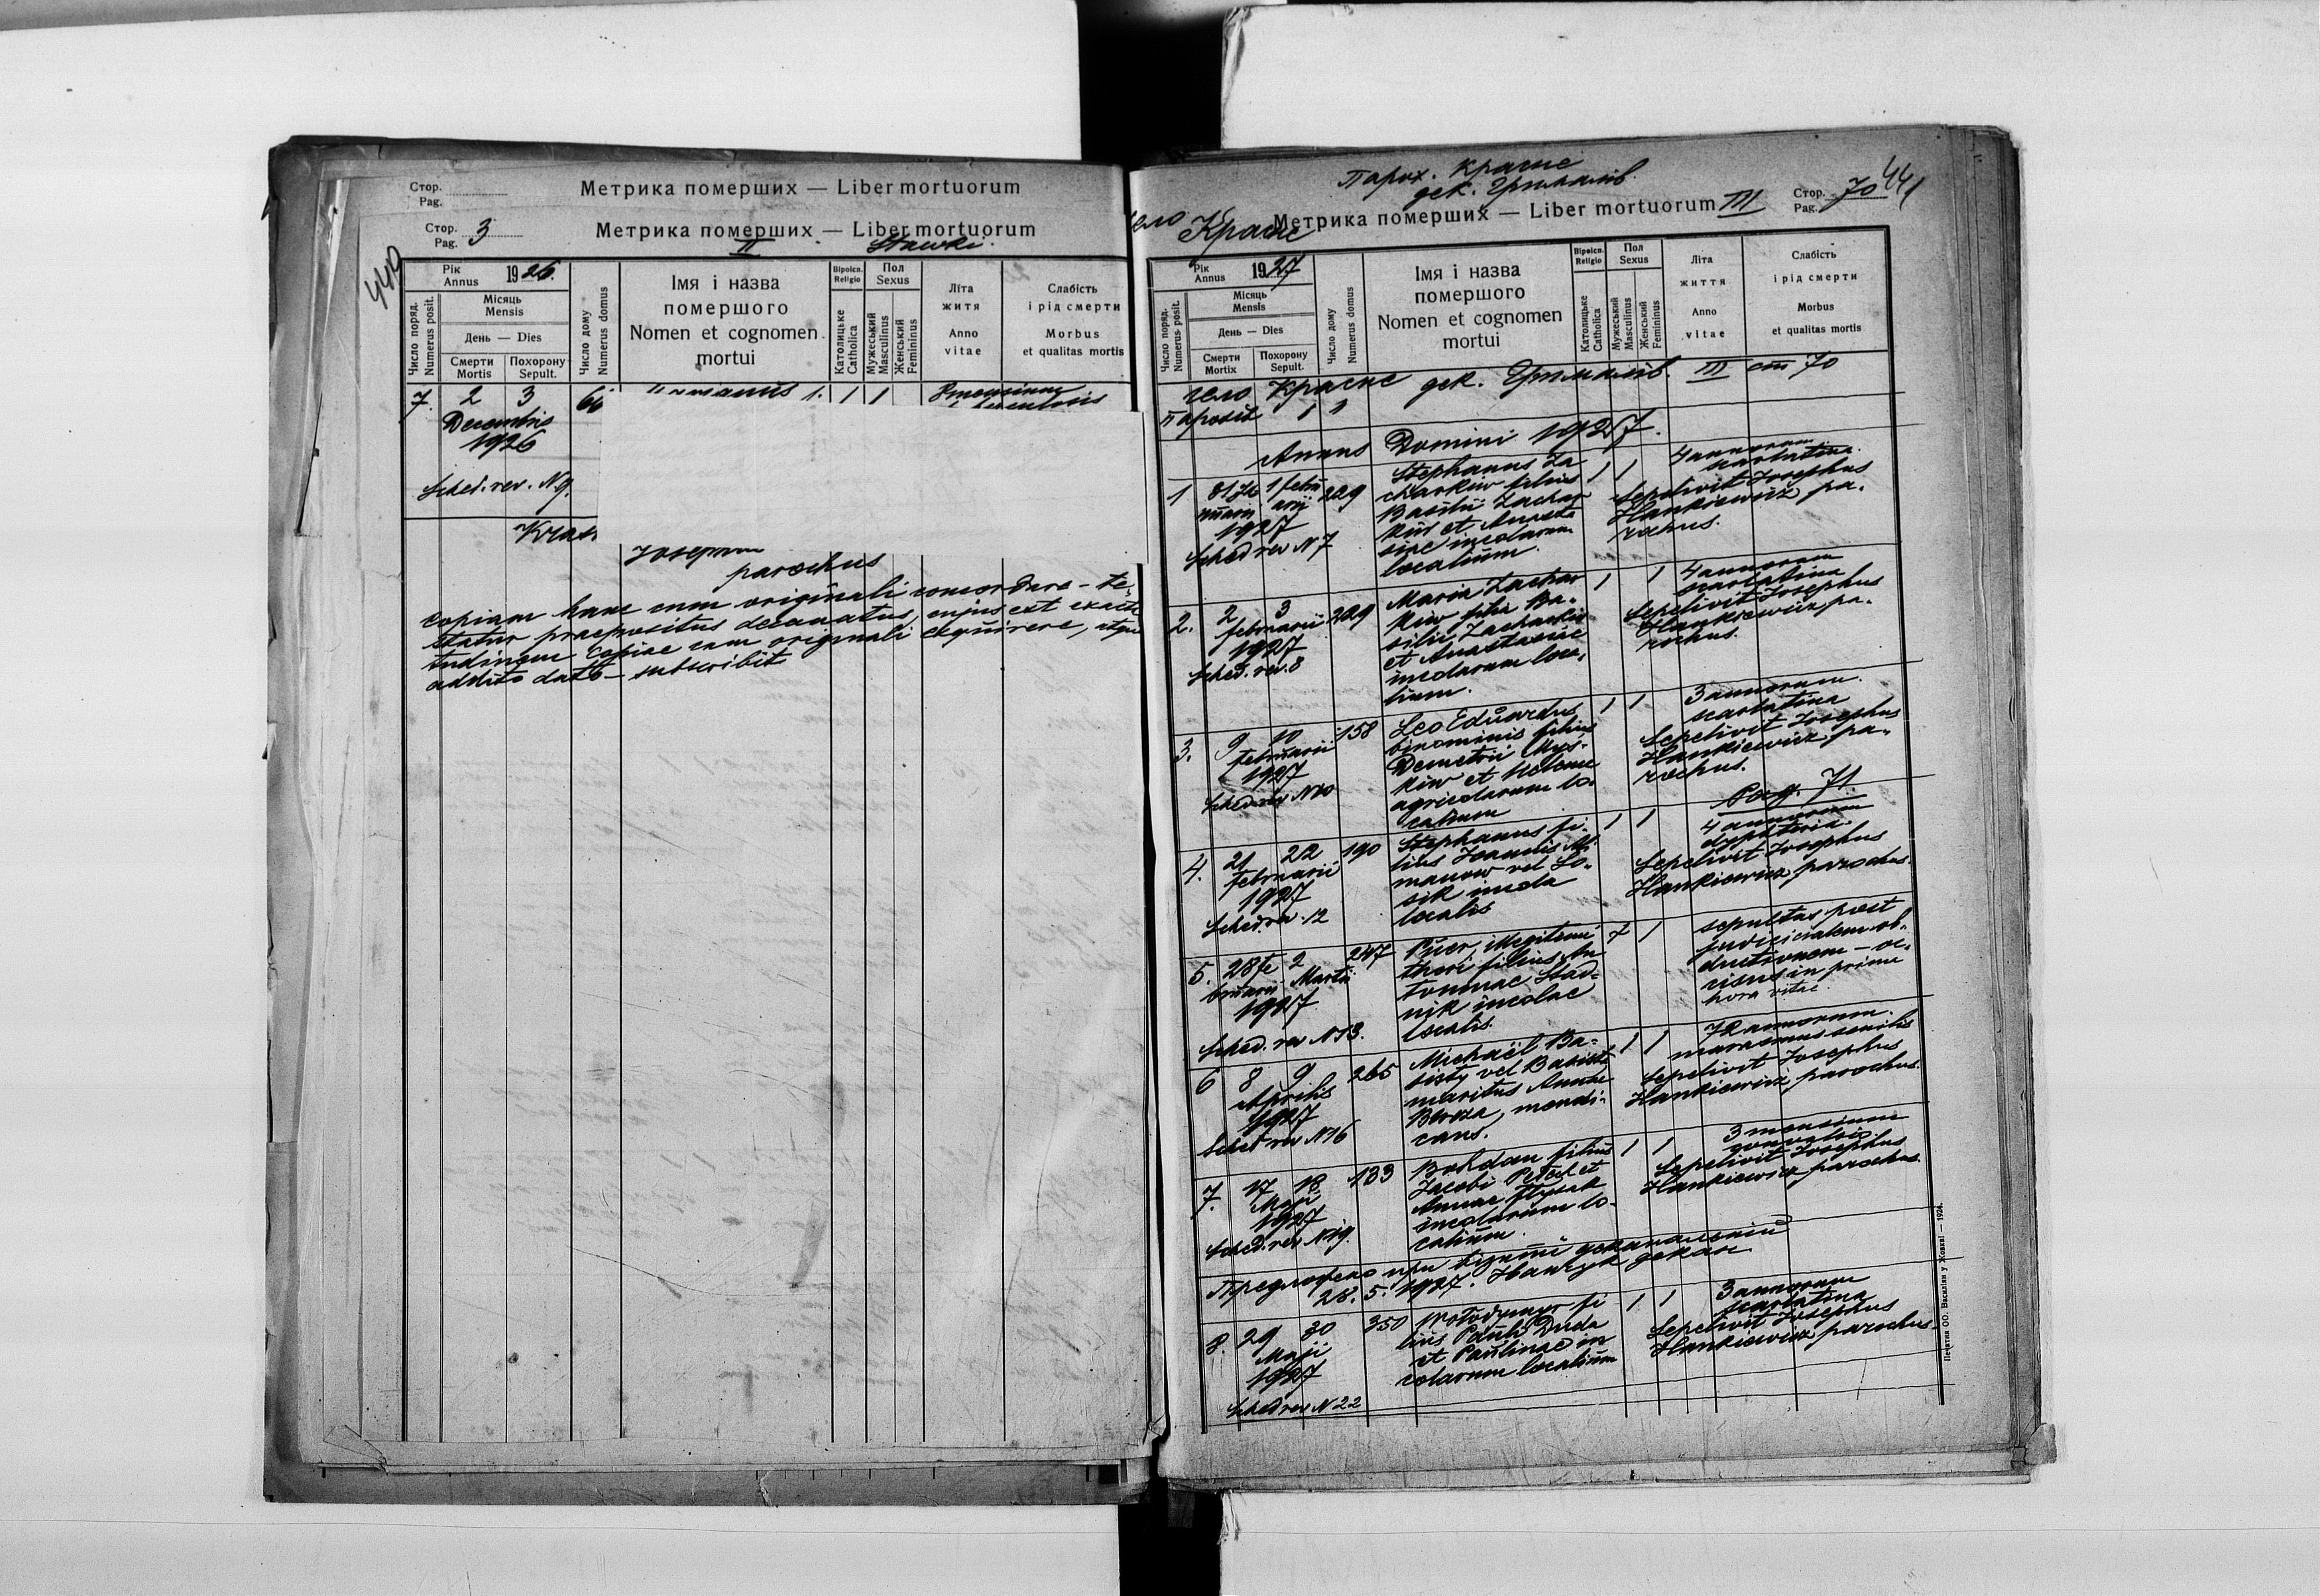 Стор.
Pag.
Метрика померших — Liber mortuorum
Стор.
Pag. 3
Метрика померших — Liber mortuorum
II Stawki.
440
Рік
Annus 1926.
Число поряд.
Numerus posit.
Місяць
Mensis
День — Dies
Смерти
Mortis
Похорону
Sepult.
Число дому
Numerus domus
Імя і назва
помершого
Nomen et cognomen
mortui
Віроісп.
Religio
Католицьке
Catholica
Пол
Sexus
Мужеський
Masculinus
Женський
Femininus
Літа
житя
Anno
vitae
Слабість
і рід смерти
Morbus
et qualitas mortis
7. 2 3 66 1 1 8 mensium
Decembris
1926
Sched. rev. N 9.
parochus
Copiam hanc cum originali concordare – te-
statur praepositus decanatus, cujus est exacti-
tudinem copiae cum originali
addito dato – subscribit
Парох. Красне
дек. Грималів.
село Красне
Метрика померших — Liber mortuorum III
Стор.
Pag. 70
441
Рік
Annus 1927
Число поряд.
Numerus posit.
Місяць
Mensis
День — Dies
Смерти
Mortix
Похорону
Sepult.
Число дому
Numerus domus
Імя і назва
помершого
Nomen et cognomen
mortui
Віроісп.
Religio
Католицьке
Catholica
Пол
Sexus
Мужеський
Masculinus
Женський
Femininus
Літа
життя
Anno
vitae
Слабість
і рід смерти
Morbus
et qualitas mortis
село Красне дек. Грималів. III ст 70
Annus Domini 1927.
1 31 Ja 1 febru 229 Stephanus Za 1 1 4 annorum
nuarii arii charkiw filius scarlatina.
1927 Basilii Zachar Sepelivit Josephus
kiw et Anasta Hankiewicz pa-
Sched rev N 7 siae incolarum rochus.
localium.
2. 2 3 229 Maria Zachar 1 1 4 annorum
februarii kiw filia Ba- scarlatina
1927 silii Zacharkiw Sepelivit Josephus
Sched. rev. 8 et Anastasiae Hankiewicz pa-
incolarum loca- rochus.
lium.
3. 9 10 158 Leo Eduardus 1 1 3 annorum.
februarii binominis filius scarlatina
1927 Demetrii Mys- Sepelivit Josephus
Sched rev N 10 kiw et Helenae Hankiewicz pa-
agricolarum lo- rochus.
calium
Pag. 71.
4. 21 22 190 Stephanus fi- 1 1 4 annorum
februarii lius Joannis
1927 manow vel Lo- Sepelivit Josephus
Sched rev. 12 sik incola Hankiewicz parochus.
localis
5. 28 fe 2 247 Puer, illegitimi 1 sepultus post
bruarii Martii thori filius An judicialem ob-
1927 toninae Stad- ductionem – oc-
nik incolae cisus in prima
Sched. rev N 13. localis. hora vitae.
6 8 9 265 Michaël Ba- 1 1 72 annorum.
Aprilis sisty vel marasmus senilis
1927 maritus Annae Sepelivit Josephus
Sched rev N 16 Bereza, mendi- Hankiewicz parochus.
cans.
7. 17 18 133 Bohdan filius 1 1 3 mensium
Maji Jacobi et
1927 Annae Sepelivit Josephus
Sched. rev N 19. incolarum lo- Hankiewicz parochus.
calium.
Предложено при візиті деканальній
28. 5. 1927. декан
8. 29 30 350 Wołodymyr fi 1 1 3 annorum
Maji lius Pauli Duda scarlatina
1927 et Paulinae in Sepelivit Josephus
Sched rev N 22 colarum localium Hankiewicz parochus.
Печатня ОО. Василіян у Жовкві — 1924.